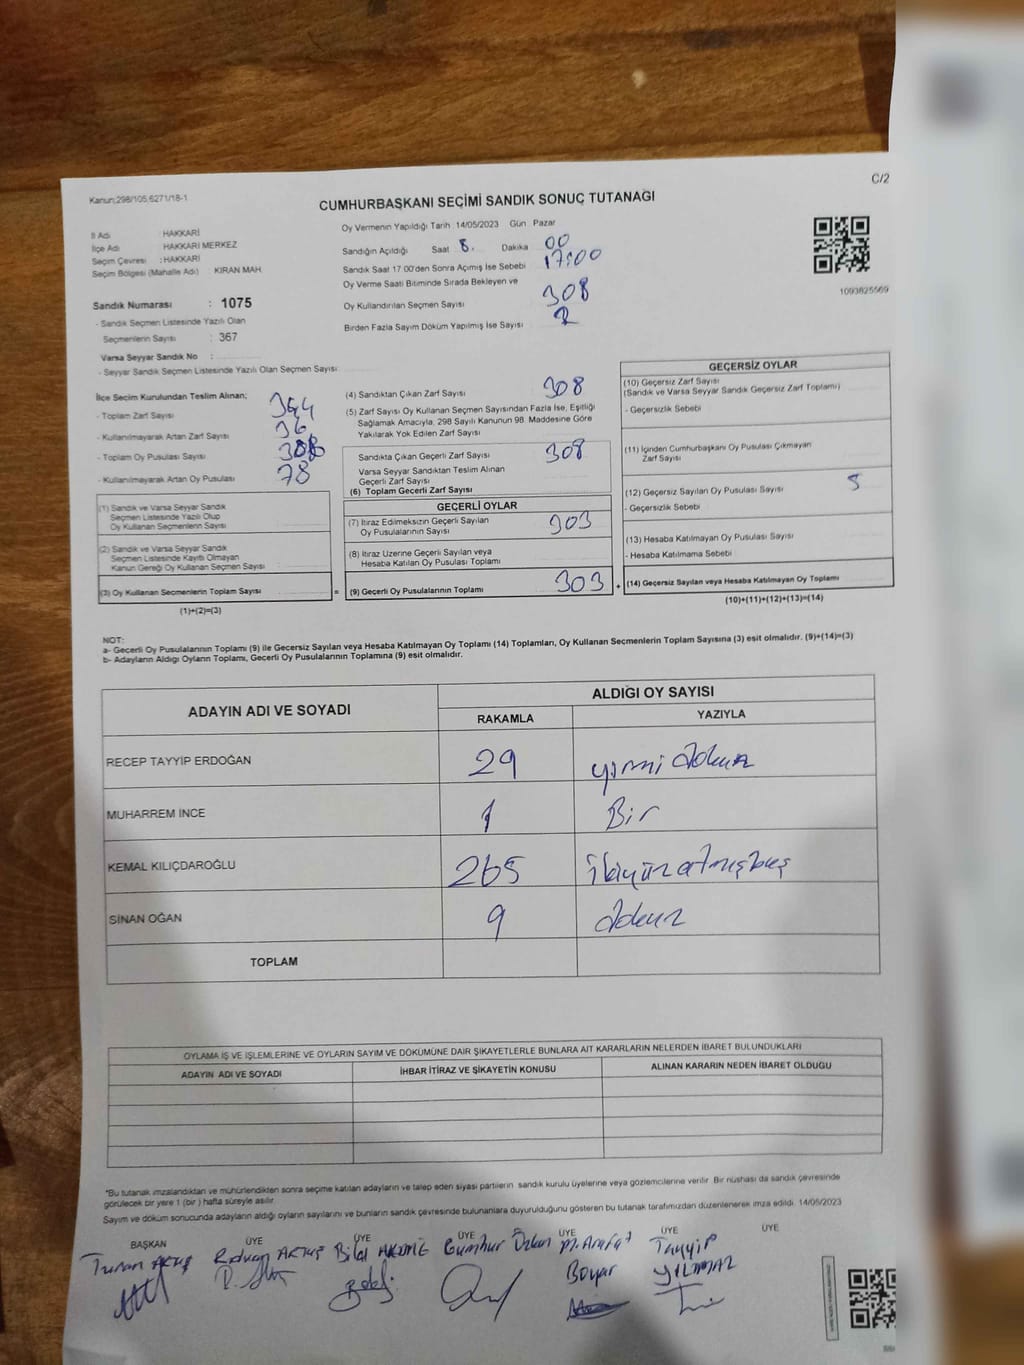 Kanun;298/105,6271/18-1
C/2
CUMHURBAŞKANI SEÇİMİ SANDIK SONUÇ TUTANAĞI
İl Adı : HAKKARİ
İlçe Adı HAKKARİ MERKEZ
Seçim Çevresi : HAKKARİ
Seçim Bölgesi (Mahalle Adı) : KIRAN MAH.
Sandık Numarası : 1075
- Sandık Seçmen Listesinde Yazılı Olan
Seçmenlerin Sayısı : 367
Varsa Seyyar Sandık No :
- Seyyar Sandık Seçmen Listesinde Yazılı Olan Seçmen Sayısı:
Oy Vermenin Yapıldığı Tarih 14/05/2023 Gün Pazar
Sandığın Açıldığı Saat 8. Dakika 00
Sandık Saat 17.00'den Sonra Açımış İse Sebebi 17:00
Oy Verme Saati Bitiminde Sırada Bekleyen ve
Oy Kullandırılan Seçmen Sayısı 308
Birden Fazla Sayım Döküm Yapılmış İse Sayısı
1093825569
İlçe Secim Kurulundan Teslim Alınan;
- Toplam Zarf Sayısı 344
- Kullanılmayarak Artan Zarf Sayısı 36
- Toplam Oy Pusulası Sayısı
- Kullanılmayarak Artan Oy Pusulası 78
(1) Sandık ve Varsa Seyyar Sandık
Seçmen Listesinde Yazılı Olup
Oy Kullanan Seçmenlerin Sayısı
(2) Sandık ve Varsa Seyyar Sandık
Seçmen Listesinde Kayıtlı Olmayan
Kanun Gereği Oy Kullanan Seçmen Sayısı :
(3) Oy Kullanan Seçmenlerin Toplam Sayısı
(1)+(2)=(3)
=
(4) Sandıktan Çıkan Zarf Sayısı 308
(5) Zarf Sayısı Oy Kullanan Seçmen Sayısından Fazla İse, Eşitliği
Sağlamak Amacıyla, 298 Sayılı Kanunun 98. Maddesine Göre
Yakılarak Yok Edilen Zarf Sayısı
Sandıkta Çıkan Geçerli Zarf Sayısı 308
Varsa Seyyar Sandıktan Teslim Alınan
Geçerli Zarf Sayısı
(6) Toplam Gecerli Zarf Sayısı
GEÇERLİ OYLAR
(7) İtiraz Edimeksizin Geçerli Sayılan
Oy Pusulalarının Sayısı 303
(8) İtiraz Uzerine Geçerli Sayılan veya
Hesaba Katılan Oy Pusulası Toplamı
(9) Geçerli Oy Pusulalarının Toplamı 303
+
GEÇERSİZ OYLAR
(10) Geçersiz Zarf Sayısı
(Sandık ve Varsa Seyyar Sandık Geçersiz Zarf Toplamı)
- Geçersizlik Sebebi
(11) İçinden Cumhurbaşkanı Oy Pusulası Çıkmayan
Zarf Sayısı
(12) Geçersiz Sayılan Oy Pusulası Sayısı 5
- Geçersizlik Sebebi
(13) Hesaba Katılmayan Oy Pusulası Sayısı
- Hesaba Katılmama Sebebi
(14) Geçersiz Sayılan veya Hesaba Katılmayan Oy Toplamı
(10)+(11)+(12)+(13)=(14)
NOT:
a- Gecerli Oy Pusulalarının Toplamı (9) ile Gecersiz Sayılan veya Hesaba Katılmayan Oy Toplamı (14) Toplamları, Oy Kullanan Seçmenlerin Toplam Sayısına (3) esit olmalıdır. (9)+(14)=(3)
b- Adayların Aldığı Oyların Toplamı, Gecerli Oy Pusulalarının Toplamına (9) esit olmalıdır.
ADAYIN ADI VE SOYADI ALDIĞI OY SAYISI
RAKAMLA YAZIYLA
RECEP TAYYİP ERDOĞAN 29 yirmi dokuz
MUHARREM İNCE 1 Bir
KEMAL KILIÇDAROĞLU 265 ikiyüz atmışbeş
SİNAN OĞAN 9 dokuz
TOPLAM
OYLAMA İŞ VE İŞLEMLERİNE VE OYLARIN SAYIM VE DÖKÜMÜNE DAİR ŞİKAYETLERLE BUNLARA AİT KARARLARIN NELERDEN İBARET BULUNDUKLARI
ADAYIN ADI VE SOYADI İHBAR İTİRAZ VE ŞİKAYETİN KONUSU ALINAN KARARIN NEDEN İBARET OLDUĞU
*Bu tutanak imzalandıktan ve mühürlendikten sonra seçime katılan adayların ve talep eden siyasi partilerin sandık kurulu üyelerine veya gözlemcilerine verilir. Bir nüshası da sandık çevresinde
görülecek bir yere 1 (bir ) hafta süreyle asılır.
Sayım ve döküm sonucunda adayların aldığı oyların sayılarını ve bunların sandık çevresinde bulunanlara duyurulduğunu gösteren bu tutanak tarafımızdan düzenlenerek imza edildi. 14/05/2023
BAŞKAN ÜYE ÜYE ÜYE ÜYE ÜYE ÜYE
Turan AKTUŞ Rıdvan AKTUŞ Bilal Cumhur Özkan M. Arafat Tayyip
Boyar YILMAZ